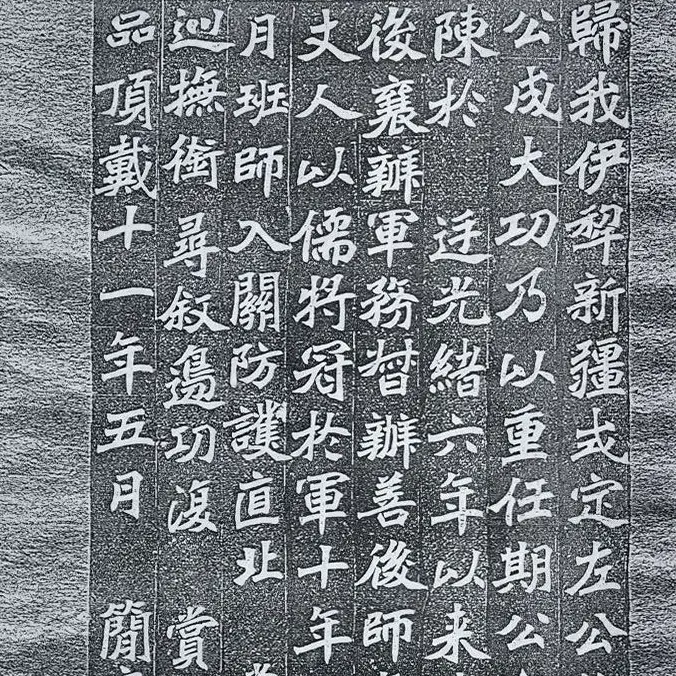 歸我伊犂新疆定左公
公成大功乃以重任期公
陳於 廷光緒六年以来
後襄辦軍務督辦善後師
丈人以儒將冠於軍十年
月班師入關防護直北
巡撫銜尋敘邊功復 賞
品頂戴十一年五月 簡